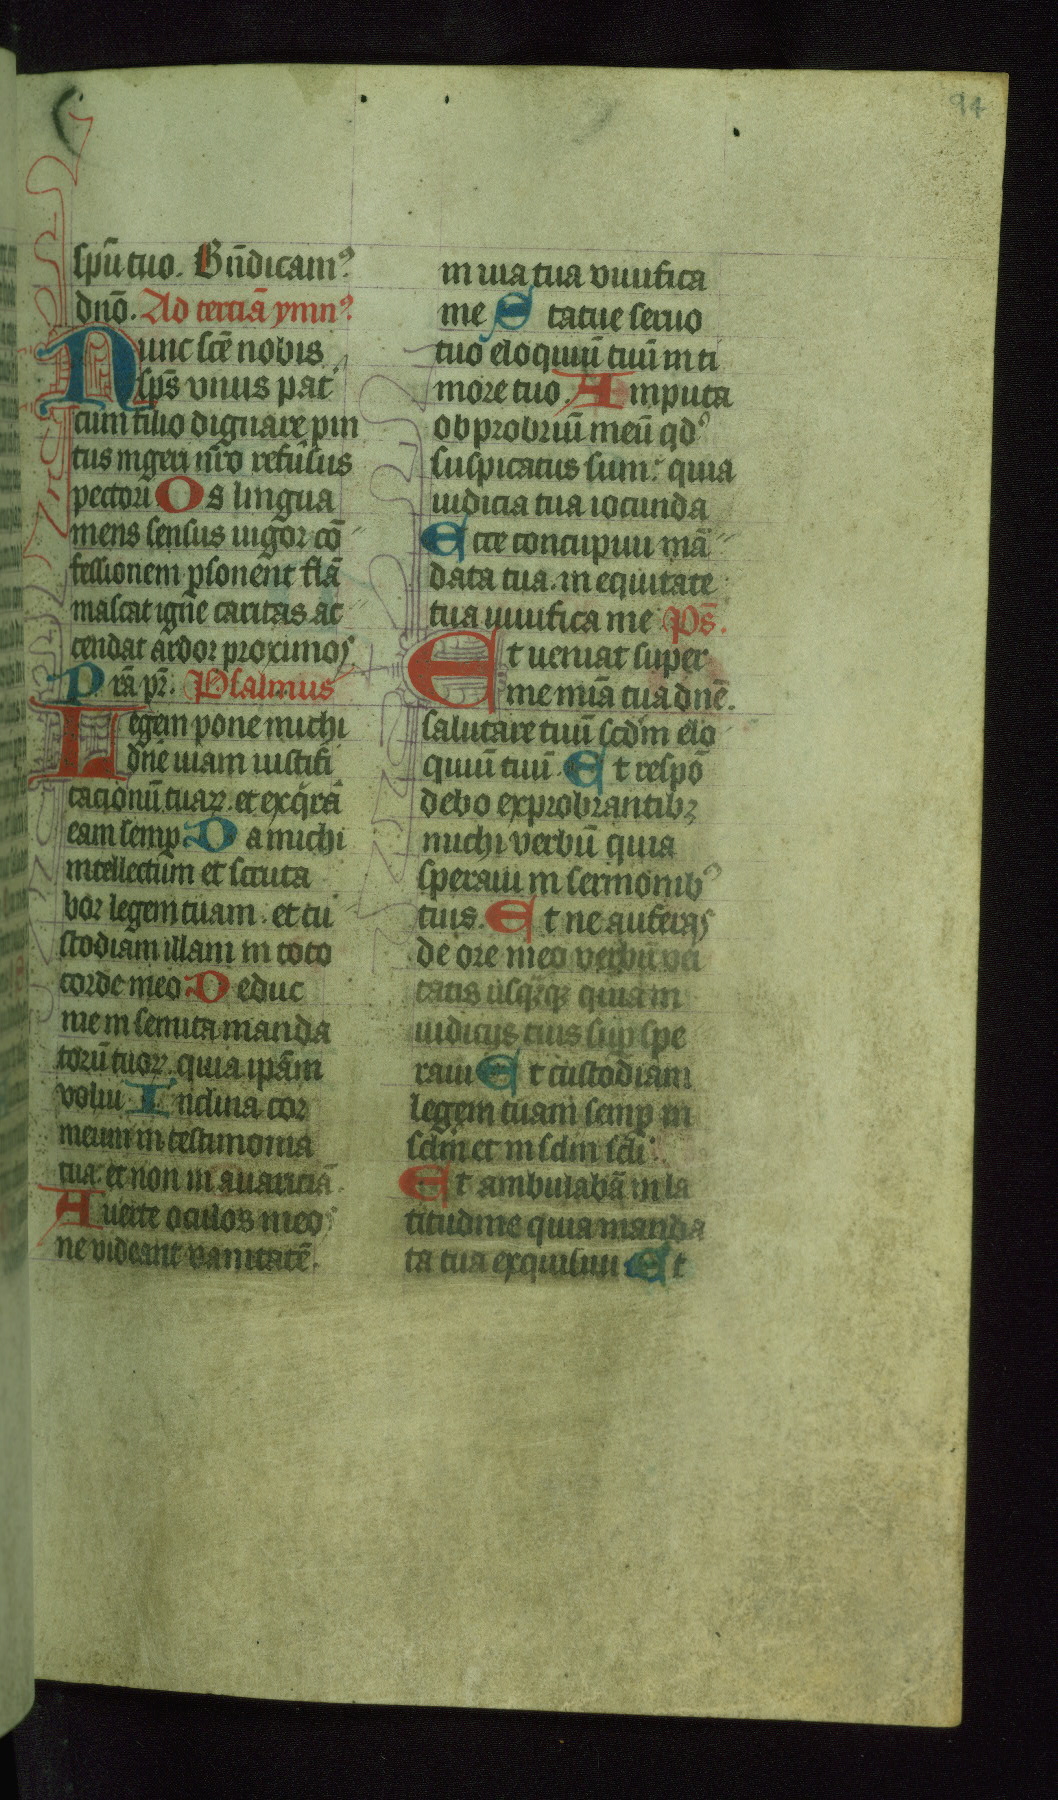 94
spũ tuo. Bñdicamꝰ
dnõ. Ad terciã ymnꝰ.
Nunc scẽ nobis
sps̃ vnus pat̾
cum filio dignare pm
tus ingeri nr̃o refusus
pectori Os lingua
mens sensus uigor cõ
fessionem ꝑsonent flã
mascat igne caritas ac
cendat ardor proximos
Prã pr̃. Psalmus
Legem pone michi
dñe uiam iustifi
cacionũ tuaꝝ. et exq̃rã
eam semꝑ Da michi
intellectum et scruta
bor legem tuam. et cu
stodiam illam in toto
corde meo Deduc
me in semita manda
torũ tuoꝝ. quia ip̃am
volui Inclina cor
meum in testimonia
tua. et non in auariciã
Auerte oculos meos
ne videant vanitatẽ.
in uia tua viuifica
me Statue seruo
tuo eloquiũ tuũ in ti
more tuo. Amputa
obprobriũ meũ qdꝰ
suspicatus sum: quia
iudicia tua iocunda
Ecce concupiui mã
data tua. in equitate
tua uiuifica me Ps̃.
Et ueniat super
me mĩa tua dñe.
salutare tuũ scdm elo
quiũ tuũ. Et respõ
debo exprobrantibꝫ
michi verbũ quia
speraui in sermonibꝰ
tuis. Et ne auferas
de ore meo verbũ ve̾i
tatis usq̃q̃ quia in
iudicijs tuis suꝑ spe
raui Et custodiam
legem tuam semꝑ in
sclm et in sclm scli.
Et ambulabã in la
titudine quia manda
ta tua exquisiui Et